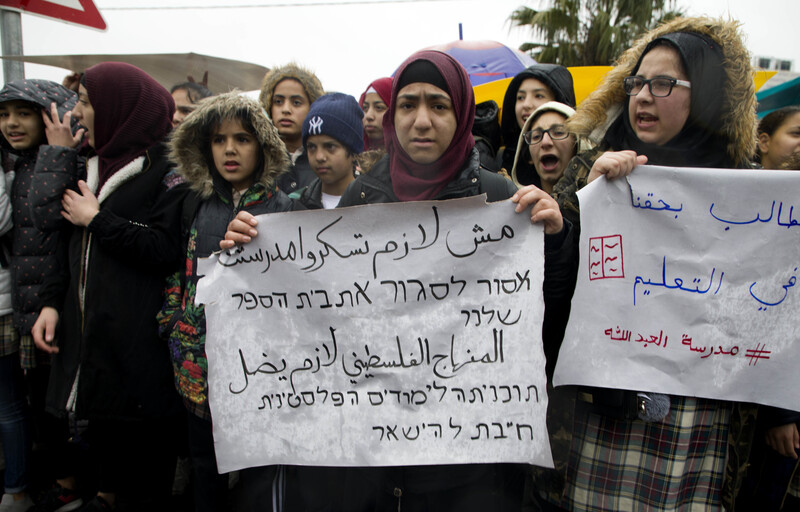 NY
مش لازم تسكروا مدرستنا
אסור לסגור את בית הספר
שלנו
المنهاج الفلسطيني لازم يضل
תוכנית הלימודים הפלסטינית
חייבת להישאר
نطالب بحقنا
في التعليم
#مدرسة العبدالله